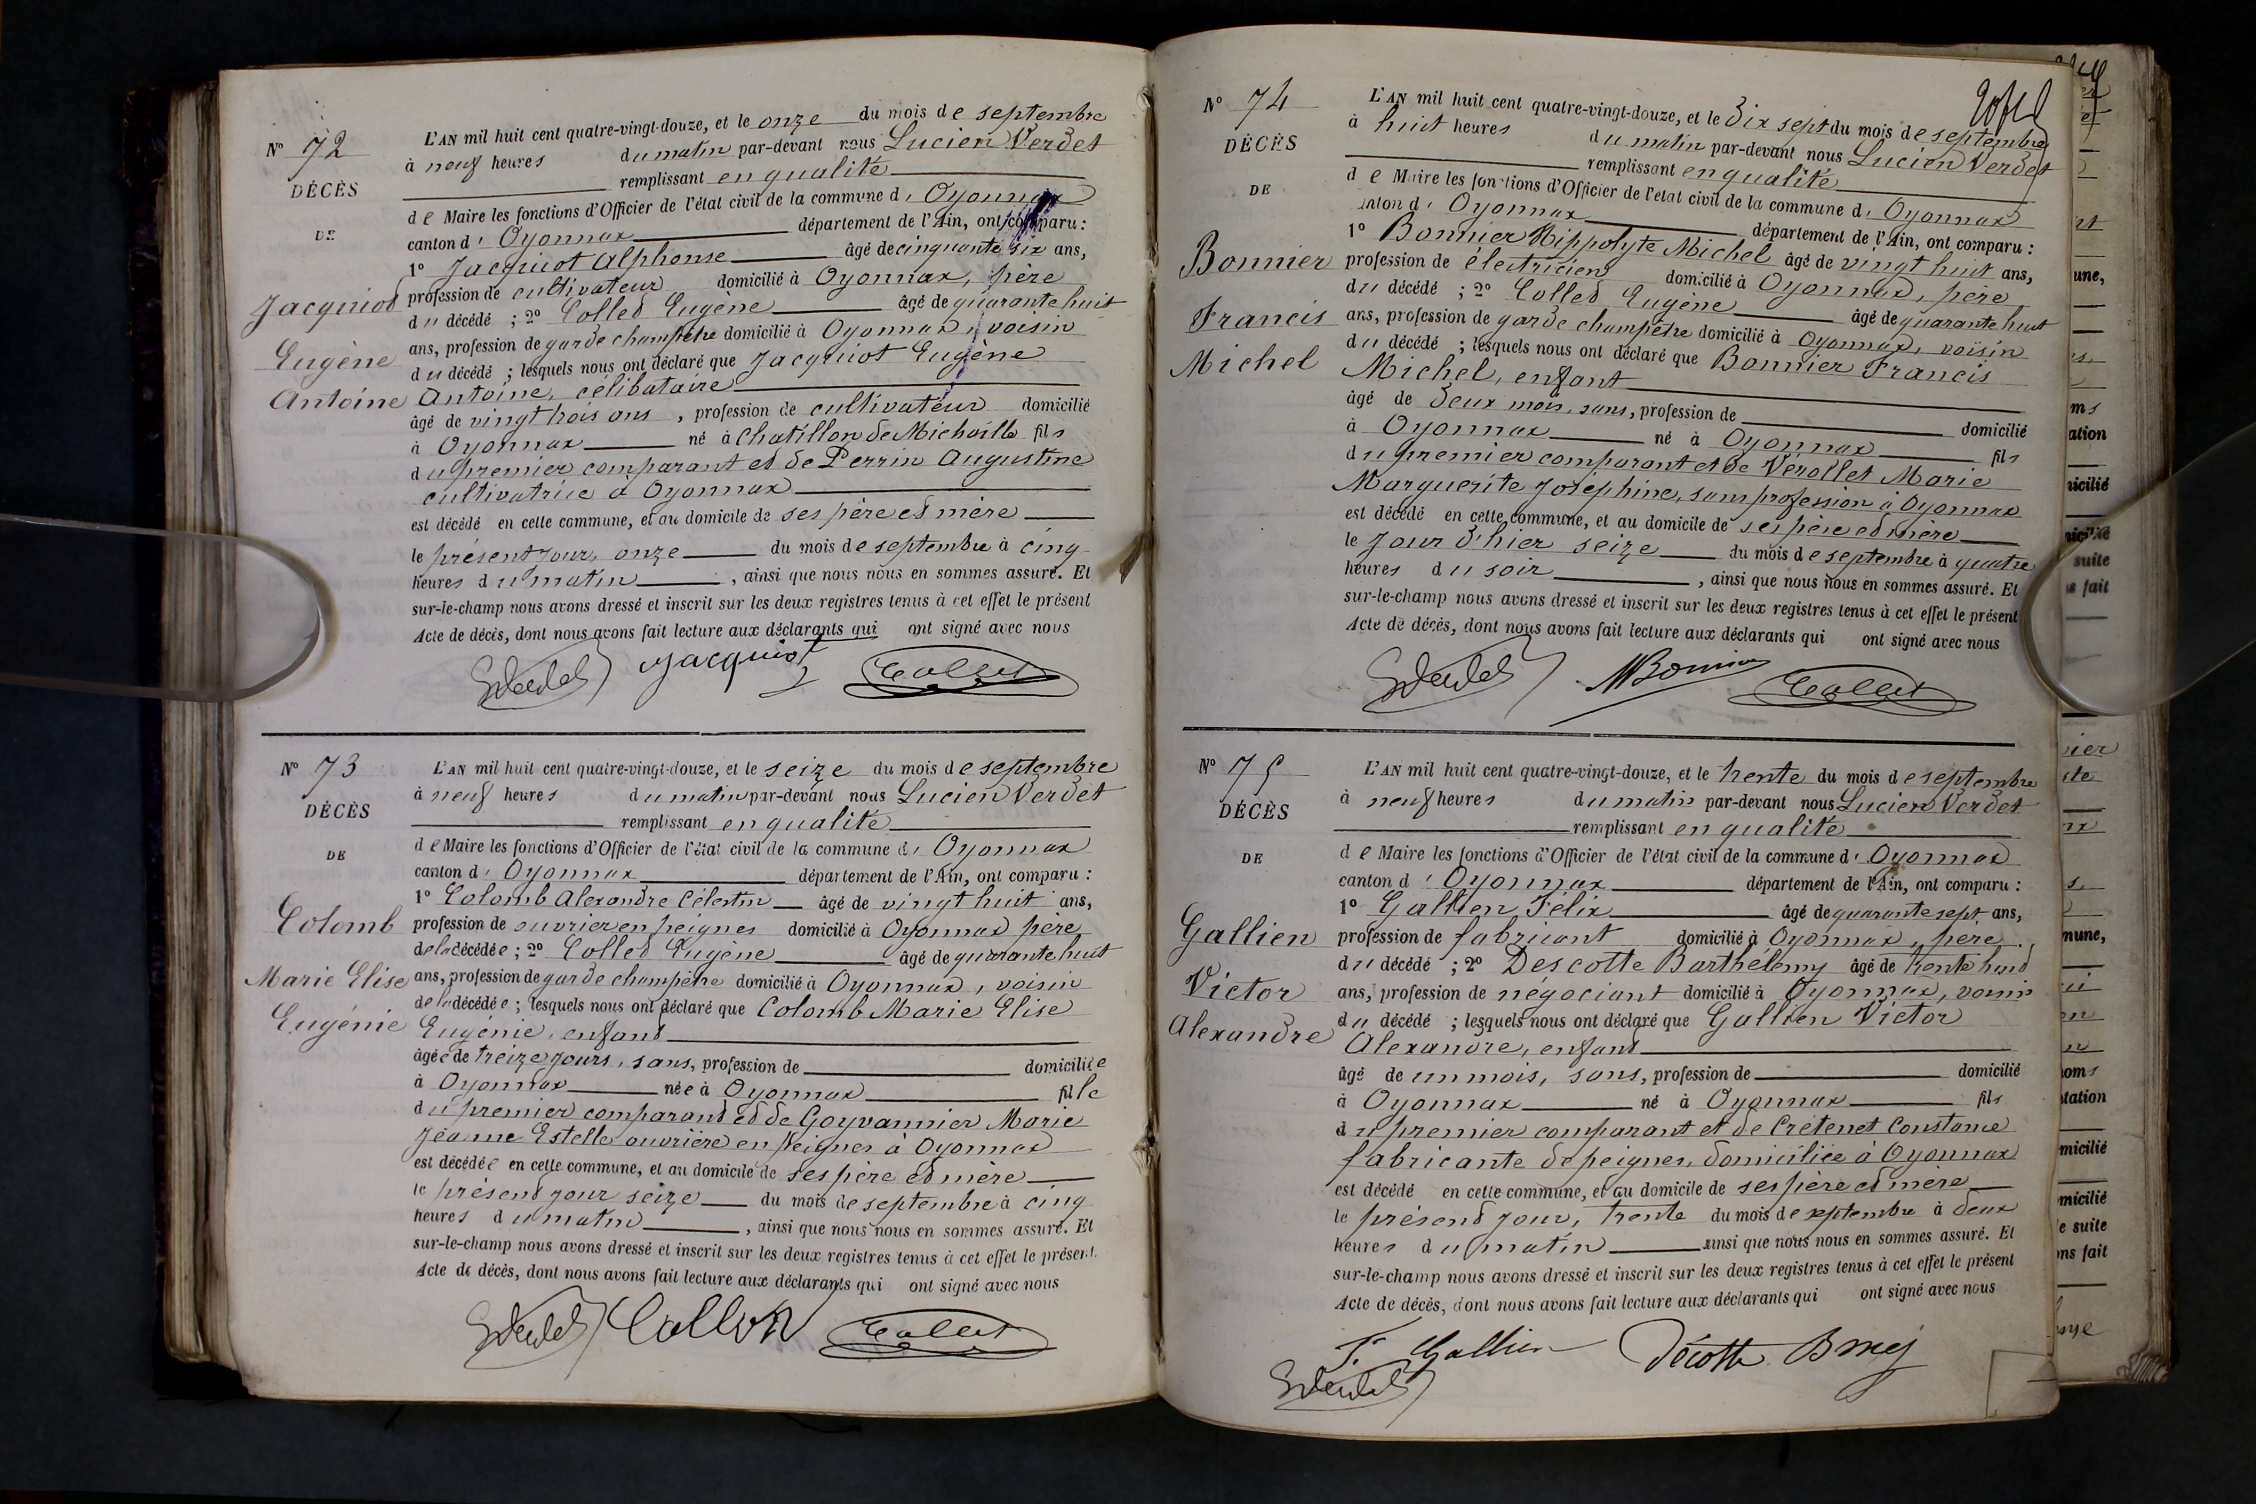 Nº 72
DÉCÈS
DE
Jacquiot
Eugène
Antoine
L'AN mil huit cent quatre-vingt-douze, et le onze du mois de septembre
à neuf heures du matin par-devant nous Lucien Verdet
remplissant en qualité
de Maire les fonctions d'Officier de l'état civil de la commune d' Oyonnax
canton d' Oyonnax département de l'Ain, ont comparu :
1º Jacquiot Alphonse âgé de cinquante six ans,
profession de cultivateur domicilié à Oyonnax, père
du décédé ; 2º Collet Eugène âgé de quarante huit
ans, profession de garde champêtre domicilié à Oyonnax, voisin
du décédé ; lesquels nous ont déclaré que Jacquiot Eugène
Antoine, célibataire
âgé de vingt trois ans, profession de cultivateur domicilié
à Oyonnax né à Chatillon de Michaille fils
du premier comparant et de Perrin Augustine
cultivatrice à Oyonnax
est décédé en cette commune, et au domicile de ses père et mère
le présent jour, onze du mois de septembre à cinq
heures du matin, ainsi que nous nous en sommes assuré. Et
sur-le-champ nous avons dressé et inscrit sur les deux registres tenus à cet effet le présent
Acte de décès, dont nous avons fait lecture aux déclarants qui ont signé avec nous
Jacquiot Collet
Nº 73
DÉCÈS
DE
Colomb
Marie Elise
Eugénie
L'AN mil huit cent quatre-vingt-douze, et le seize du mois de septembre
à neuf heures du matin par-devant nous Lucien Verdet
remplissant en qualité
de Maire les fonctions d'Officier de l'état civil de la commune d' Oyonnax
canton d' Oyonnax département de l'Ain, ont comparu :
1º Colomb Alexandre Célestin âgé de vingt huit ans,
profession de ouvrier en peignes domicilié à Oyonnax père
de la décédée ; 2º Collet Eugène âgé de quarante huit
ans, profession de garde champêtre domicilié à Oyonnax, voisin
de la décédée ; lesquels nous ont déclaré que Colomb Marie Elise
Eugénie, enfant
âgée de treize jours, sans, profession de domiciliée
à Oyonnax née à Oyonnax fille
du premier comparant et de Goyvannier Marie
Jéanne Estelle ouvrière en peignes à Oyonnax
est décédée en cette commune, et au domicile de ses père et mère
le présent jour seize du mois de septembre à cinq
heures du matin, ainsi que nous nous en sommes assuré. Et
sur-le-champ nous avons dressé et inscrit sur les deux registres tenus à cet effet le présent
Acte de décès, dont nous avons fait lecture aux déclarants qui ont signé avec nous
Collet
Nº 74
DÉCÈS
DE
Bonnier
Francis
Michel
L'AN mil huit cent quatre-vingt-douze, et le dix sept du mois de septembre
à huit heures du matin par-devant nous Lucien Verdet
remplissant en qualité
de Maire les fonctions d'Officier de l'état civil de la commune d' Oyonnax
canton d' Oyonnax département de l'Ain, ont comparu :
1º Bonnier Hippolyte Michel âgé de vingt huit ans,
profession de électricien domicilié à Oyonnax, père
du décédé ; 2º Collet Eugène âgé de quarante huit
ans, profession de garde champêtre domicilié à Oyonnax, voisin
du décédé ; lesquels nous ont déclaré que Bonnier Francis
Michel, enfant
âgé de deux mois, sans, profession de domicilié
à Oyonnax né à Oyonnax fils
du premier comparant et de Vérollet Marie
Marguerite Joséphine, sans profession à Oyonnax
est décédé en cette commune, et au domicile de ses père et mère
le jour d'hier seize du mois de septembre à quatre
heures du soir, ainsi que nous nous en sommes assuré. Et
sur-le-champ nous avons dressé et inscrit sur les deux registres tenus à cet effet le présent
Acte de décès, dont nous avons fait lecture aux déclarants qui ont signé avec nous
Collet
Nº 75
DÉCÈS
DE
Gallien
Victor
Alexandre
L'AN mil huit cent quatre-vingt-douze, et le trente du mois de septembre
à neuf heures du matin par-devant nous Lucien Verdet
remplissant en qualité
de Maire les fonctions d'Officier de l'état civil de la commune d' Oyonnax
canton d' Oyonnax département de l'Ain, ont comparu :
1º Gallien Félix âgé de quarante sept ans,
profession de fabricant domicilié à Oyonnax, père
du décédé ; 2º Descotte Barthélemy âgé de trente huit
ans, profession de négociant domicilié à Oyonnax, voisin
du décédé ; lesquels nous ont déclaré que Gallien Victor
Alexandre, enfant
âgé de un mois, sans, profession de domicilié
à Oyonnax né à Oyonnax fils
du premier comparant et de Crétenet Constance
fabricante de peignes, domiciliée à Oyonnax
est décédé en cette commune, et au domicile de ses père et mère
le présent jour, trente du mois de septembre à deux
heures du matin ainsi que nous nous en sommes assuré. Et
sur-le-champ nous avons dressé et inscrit sur les deux registres tenus à cet effet le présent
Acte de décès, dont nous avons fait lecture aux déclarants qui ont signé avec nous
F. Gallien